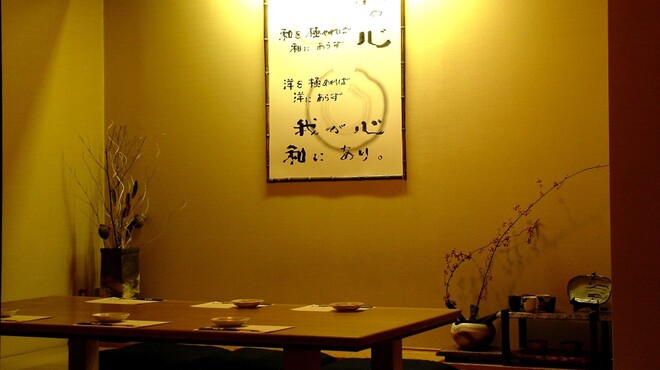 の
心
和を極めれば
和にあらず
洋を極めれば
洋にあらず
我が心
和にあり。